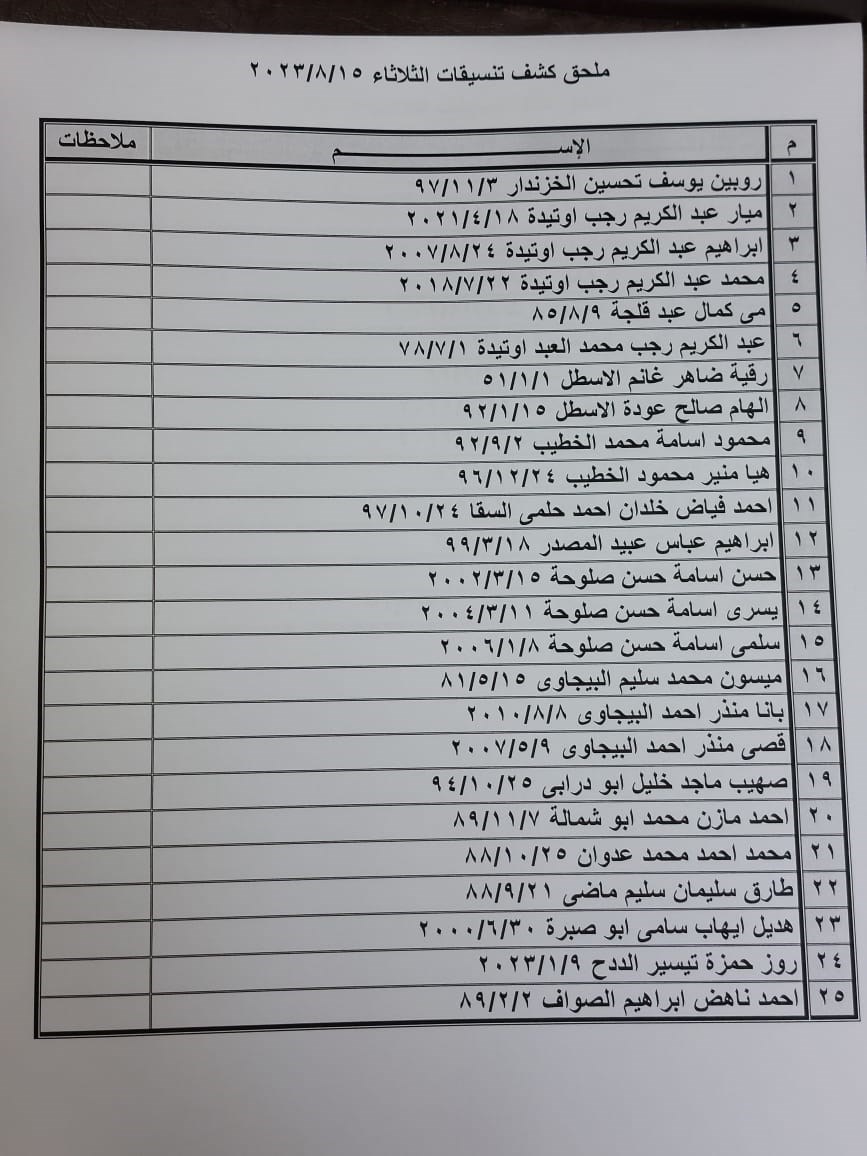 ملحق كشف تنسيقات الثلاثاء ٢٠٢٣/٨/١٥
م الإســـــــــم ملاحظات
١ روبين يوسف تحسين الخزندار ٩٧/١١/٣
٢ ميار عبد الكريم رجب اوتيدة ٢٠٢١/٤/١٨
٣ ابراهيم عبد الكريم رجب اوتيدة ٢٠٠٧/٨/٢٤
٤ محمد عبد الكريم رجب اوتيدة ٢٠١٨/٧/٢٢
٥ مى كمال عبد قلجة ٨٥/٨/٩
٦ عبد الكريم رجب محمد العبد اوتيدة ٧٨/٧/١
٧ رقية ضاهر غانم الاسطل ٥١/١/١
٨ الهام صالح عودة الاسطل ٩٢/١/١٥
٩ محمود اسامة محمد الخطيب ٩٢/٩/٢
١٠ هيا منير محمود الخطيب ٩٦/١٢/٢٤
١١ احمد فياض خلدان احمد حلمى السقا ٩٧/١٠/٢٤
١٢ ابراهيم عباس عبيد المصدر ٩٩/٣/١٨
١٣ حسن اسامة حسن صلوحة ٢٠٠٢/٣/١٥
١٤ يسرى اسامة حسن صلوحة ٢٠٠٤/٣/١١
١٥ سلمى اسامة حسن صلوحة ٢٠٠٦/١/٨
١٦ ميسون محمد سليم البيجاوى ٨١/٥/١٥
١٧ بانا منذر احمد البيجاوى ٢٠١٠/٨/٨
١٨ قصى منذر احمد البيجاوى ٢٠٠٧/٥/٩
١٩ صهيب ماجد خليل ابو درابى ٩٤/١٠/٢٥
٢٠ احمد مازن محمد ابو شمالة ٨٩/١١/٧
٢١ محمد احمد محمد عدوان ٨٨/١٠/٢٥
٢٢ طارق سليمان سليم ماضى ٨٨/٩/٢١
٢٣ هديل ايهاب سامى ابو صبرة ٢٠٠٠/٦/٣٠
٢٤ روز حمزة تيسير الددح ٢٠٢٣/١/٩
٢٥ احمد ناهض ابراهيم الصواف ٨٩/٢/٢